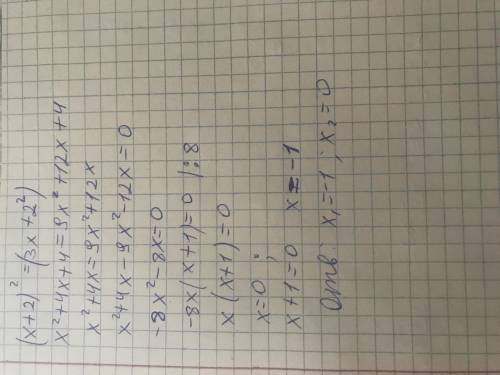 (x+2)² = (3x+2²)
x²+4x+4=9x²+12x+4
x²+4x=9x²+12x
x²+4x-9x²-12x=0
-8x²-8x=0
-8x(x+1)=0 |:8
x(x+1)=0
x=0;
x+1=0 x=-1
Отв: x₁=-1; x₂=0